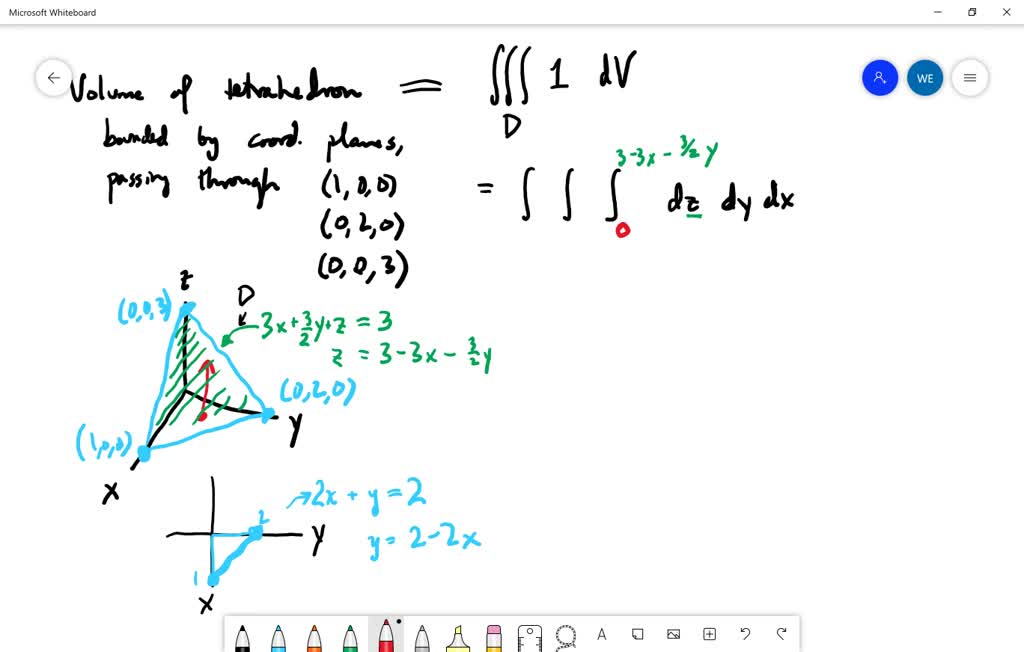 Microsoft Whiteboard
WE
Volume of tetrahedron = ∭ 1 dV
D
bounded by coord. planes,
passing through (1,0,0)
(0,2,0)
(0,0,3)
= ∫ ∫ ∫ dz dy dx
3-3x-3/2 y
0
z
(0,0,3)
D
3x+3/2y+z = 3
z = 3-3x-3/2y
(0,2,0)
y
(1,0,0)
x
2x + y = 2
2
y
y = 2-2x
1
x
A